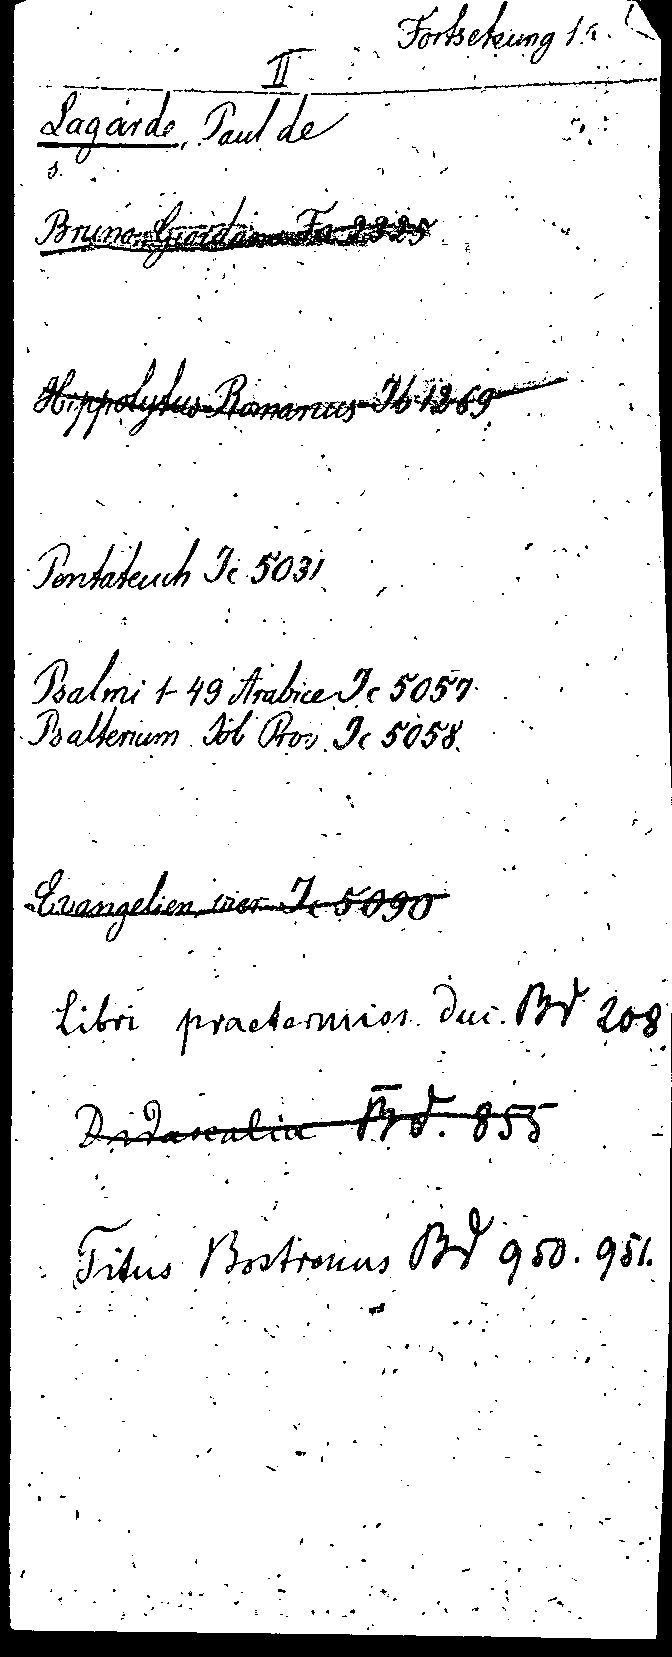 Fortsetzung 1a.
II
Lagarde, Paul de
s.
Bruno Giordano Fa 2325
Hippolytus Romanus Ib 1269
Pentateuch Ic 5031
Psalmi 1-49 Arabice Ic 5057
Psalterium Job Prov. Ic 5058.
Evangelien, vier Ic 5090
Libri praetermiss. duc. Bd 208
Didascalia Bd. 855
Titus Bostrenus Bd 950. 951.